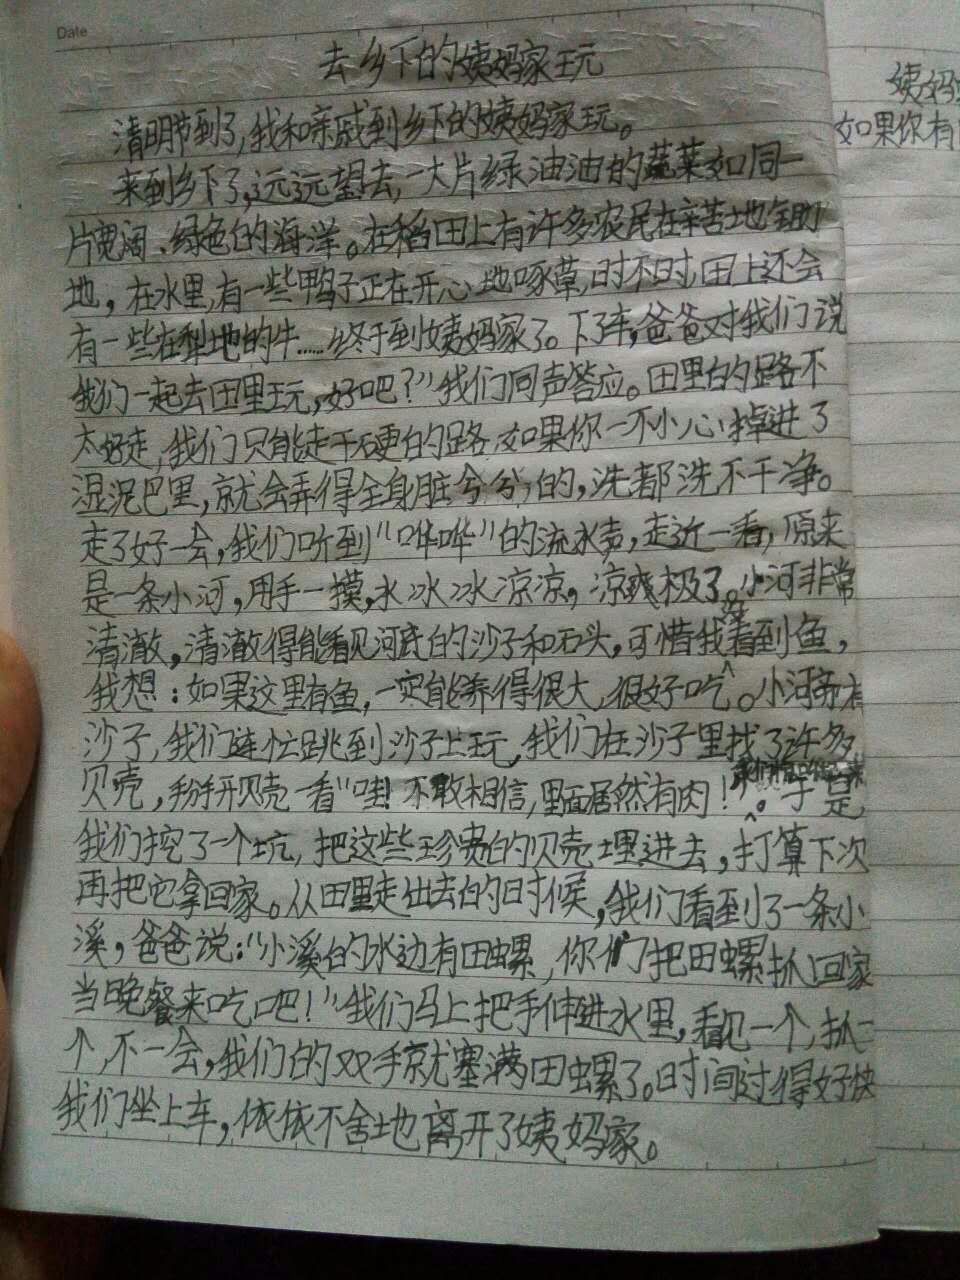 Date
去乡下的姨妈家玩
清明节到了,我和亲戚到乡下的姨妈家玩。
来到乡下了,远远望去,一大片绿油油的蔬菜如同一
片宽阔、绿色的海洋。在稻田上有许多农民在辛苦地
地,在水里,有一些鸭子正在开心地啄草,时不时,田上还会
有一些在犁地的牛……终于到姨妈家了。下了车,爸爸对我们说
我们一起去田里玩,好吧?”我们同声答应。田里的路不
太好走,我们只能走干硬的路,如果你一不小心掉进了
湿泥巴里,就会弄得全身脏兮兮的,洗都洗不干净。
走了好一会,我们听到“哗哗”的流水声,走近一看,原来
是一条小河,用手一摸,水冰冰凉凉,凉爽极了。小河非常
清澈,清澈得能看见河底的沙子和石头,可惜我没看到鱼,
我想:如果这里有鱼,一定能养得很大,很好吃。小河旁有
沙子,我们连忙跳到沙子上玩,我们在沙子里找了许多
贝壳,掰开贝壳一看“哇!不敢相信,里面居然有肉!”。于是
我们挖了一个坑,把这些珍贵的贝壳埋进去,打算下次
再把它拿回家。从田里走出去的时候,我们看到了一条小
溪,爸爸说:“小溪的水边有田螺,你们把田螺抓回家
当晚餐来吃吧!”我们马上把手伸进水里,看见一个,抓一
个,不一会,我们的双手就塞满田螺了。时间过得好快
我们坐上车,依依不舍地离开了姨妈家。
姨妈
如果你有